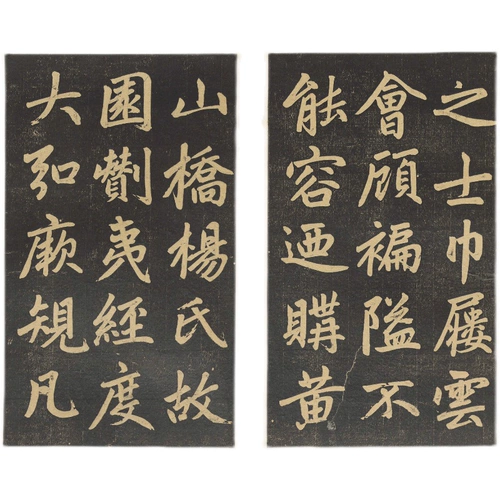 之士巾屨雲
會頋褊隘不
能容迺購黄
山橋楊氏故
園劗夷經度
大弘厥規凡